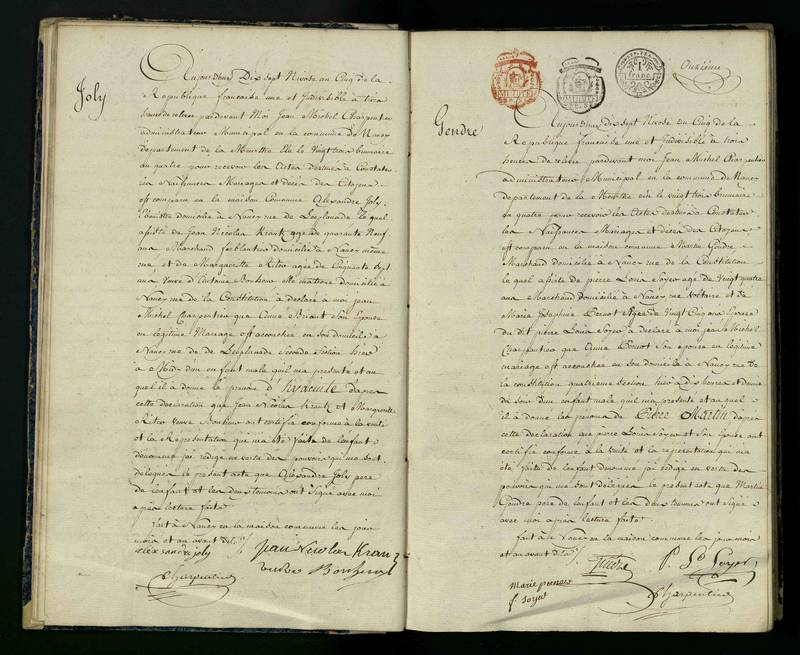 Joly
Aujourdhuy Dix Sept Nivose an Cinq de la
Republique francaise une et Indivisible à trois
heures de relevée pardevant Moi Jean Michel Charpentier
administrateur Municipal en la commune de Nancy
departement de la Meurthe élu le Vingt trois brumaire
an quatre pour recevoir les Actes destinés à Constater
les Naissances Mariages et décès des Citoyens
est comparu en la maison Commune Alexandre Joly
domicilié à Nancy rue de Lesplanade le quel
assisté de Jean Nicolas Krantz agé de quarante Neuf
ans Marchand ferblantier domicilié à Nancy même
rue et de Marguerite agée de Cinquante Sept
ans Veuve d'Antoine domiciliée à
Nancy rue de la Constitution à déclaré à moi jean
Michel Charpentier que Anne Son Epouse
en légitime Mariage est accouchée en son domicile à
Nancy rue de de Lesplanade Seconde Section hier
à Midy d'un enfant male quil ma presenté et au
quel il à donné le prenom d'hyacinte d'apres
cette déclaration que Jean Nicolas Krantz et Marguerite
Veuve ont certifié conforme à la verité
et la Représentation qui ma été faite de lenfant
denommé jai rédigé en vertu des pouvoirs qui me sont
délégués le présent acte que Alexandre Joly pere
de lenfant et les deux temoins ont Signé avec moi
apres lecture faite
fait à Nancy en la maison commune les jour
mois et an avant dits
alexandre joly Jean Nicolas Krantz
veuve
Charpentier
MINUTE
MINUTE
1 franc
Onzieme
Gendre
Aujourdhuy Dix sept Nivose an Cinq de la
Republique francaise une et Indivisible à trois
heures de relevée pardevant moi Jean Michel Charpentier
administrateur Municipal en la commune de Nancy
departement de la Meurthe élu le vingt trois brumaire
an quatre pour recevoir les Actes destinés à Constater
les Naissances Mariages et décès des Citoyens
est comparu en la maison commune Martin Gendre
Marchand domicilié à Nancy rue de la Constitution
le quel assisté de pierre Louis Soyer agé de Vingt quatre
ans Marchand domicilié à Nancy rue Voltaire et de
Marie Josephine agée de Vingt Cinq ans Epouse
du dit pierre Louis Soyer à déclaré à moi jean Michel
Charpentier que Anne Son epouse en légitime
mariage est accouchée en son domicile à Nancy rue de
la constitution quatrieme Section, hier à dix heures et demie
du Soir d'un enfant male quil ma presenté et au quel
il à donné les prenoms de Pierre Martin d'apres
cette déclaration que pierre Louis Soyer et Son Epouse ont
certifié conforme à la verité et la représentation qui ma
été faite de lenfant denommé jai rédigé en vertu des
pouvoirs qui me sont délégués le présent acte que Martin
Gendre pere de lenfant et les deux temoins ont Signé
avec moi apres lecture faite
fait à Nancy en la maison commune les jour mois
et an avant dits
Gendre P. L. Soyer
marie
f. soyer Charpentier